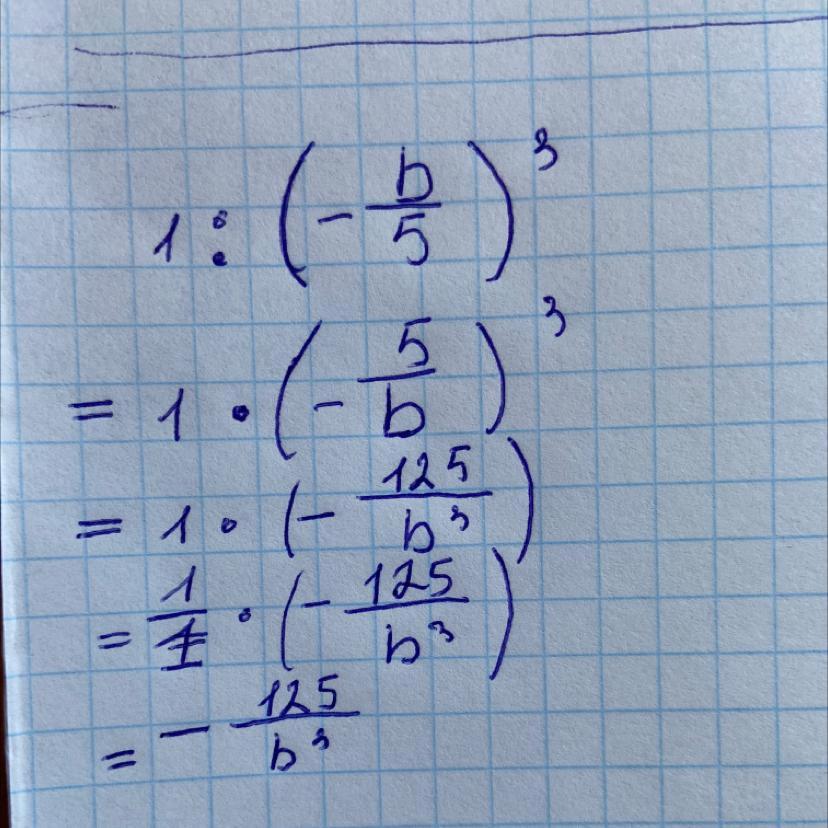 1 : (- b/5)³
= 1 · (- 5/b)³
= 1 · (- 125/b³)
= 1/1 · (- 125/b³)
= - 125/b³